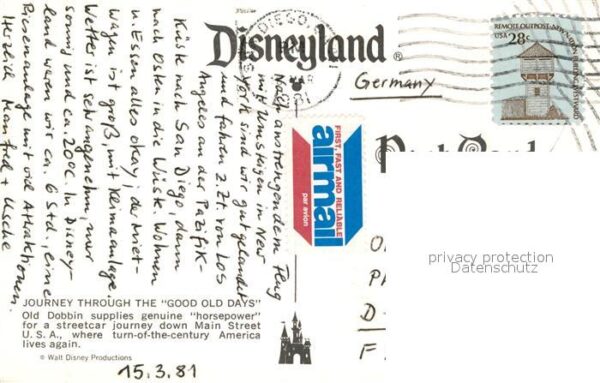 Disneyland®
SAN DIEGO, CA
MAR
1981
REMOTE OUTPOST
USA 28c
Germany
Nach anstrengendem Flug
mit Umsteigen in New
York sind wir gut gelandet
und fahren z. Zt. von Los
Angeles an der Pazifik-
Küste nach San Diego, dann
nach Osten in die Wüste. Wohnen
u. Essen alles okay, der Miet-
wagen ist groß, mit Klimaanlage.
Wetter ist sehr angenehm, nur
sonnig und ca. 20°C. In Disney-
land waren wir ca. 6 Std., eine
Riesenanlage mit viel Attraktionen.
Herzlich Manfred + Usche
FIRST, FAST AND RELIABLE
airmail
par avion
Post Card
privacy protection
Datenschutz
D-
F
JOURNEY THROUGH THE "GOOD OLD DAYS"
Old Dobbin supplies genuine "horsepower"
for a streetcar journey down Main Street
U.S.A., where turn-of-the-century America
lives again.
© Walt Disney Productions
15.3.81